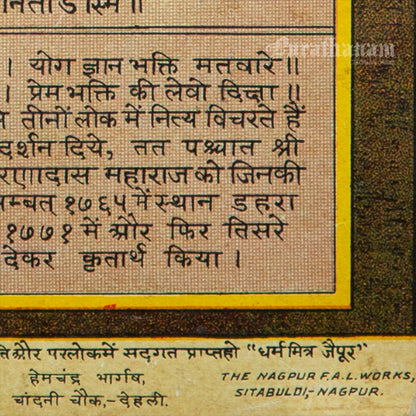 । योग ज्ञान भक्ति मतवारे॥
। प्रेम भक्ति की लेवो दिक्षा॥
तीनों लोक में नित्य विचरते हैं
दर्शन दिये, तत पश्चात श्री
महाराज को जिनकी
१७६५ में स्थान डहरा
१७७१ में और फिर तिसरे
देकर कृतार्थ किया।
और परलोकमें सद्गत प्राप्तहो "धर्ममित्र जैपूर"
हेमचंद्र भार्गव,
चांदनी चौक,-देहली.
THE NAGPUR F.A.L. WORKS,
SITABULDI,-NAGPUR.